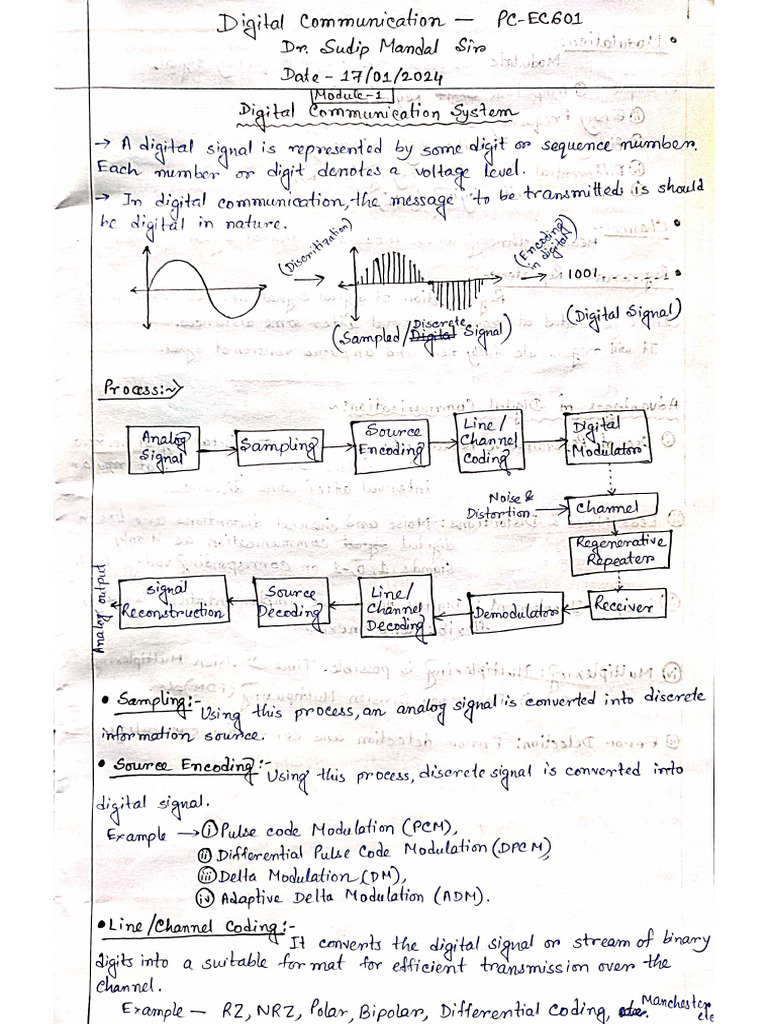 Digital Communication — PC-EC601
Dr. Sudip Mandal Sir
Date - 17/01/2024
Module-1
Digital Communication System
→ A digital signal is represented by some digit or sequence number.
Each number or digit denotes a voltage level.
→ In digital communication, the message to be transmitted is should
be digital in nature.
(Discritization)
(Encoding in digital)
1001
(Sampled/Discrete Digital Signal)
(Digital Signal)
Process:~
Analog Signal
Sampling
Source Encoding
Line/ Channel Coding
Digital Modulator
Noise & Distortion
Channel
Regenerative Repeater
Receiver
Demodulator
Line/ Channel Decoding
Source Decoding
Signal Reconstruction
Analog output
• Sampling:- Using this process, an analog signal is converted into discrete
information source.
• Source Encoding:- Using this process, discrete signal is converted into
digital signal.
Example → (i) Pulse code Modulation (PCM),
(ii) Differential Pulse Code Modulation (DPCM)
(iii) Delta Modulation (DM),
(iv) Adaptive Delta Modulation (ADM).
• Line/Channel Coding:- It converts the digital signal or stream of binary
digits into a suitable format for efficient transmission over the
channel.
Example — RZ, NRZ, Polar, Bipolar, Differential Coding, Manchester etc